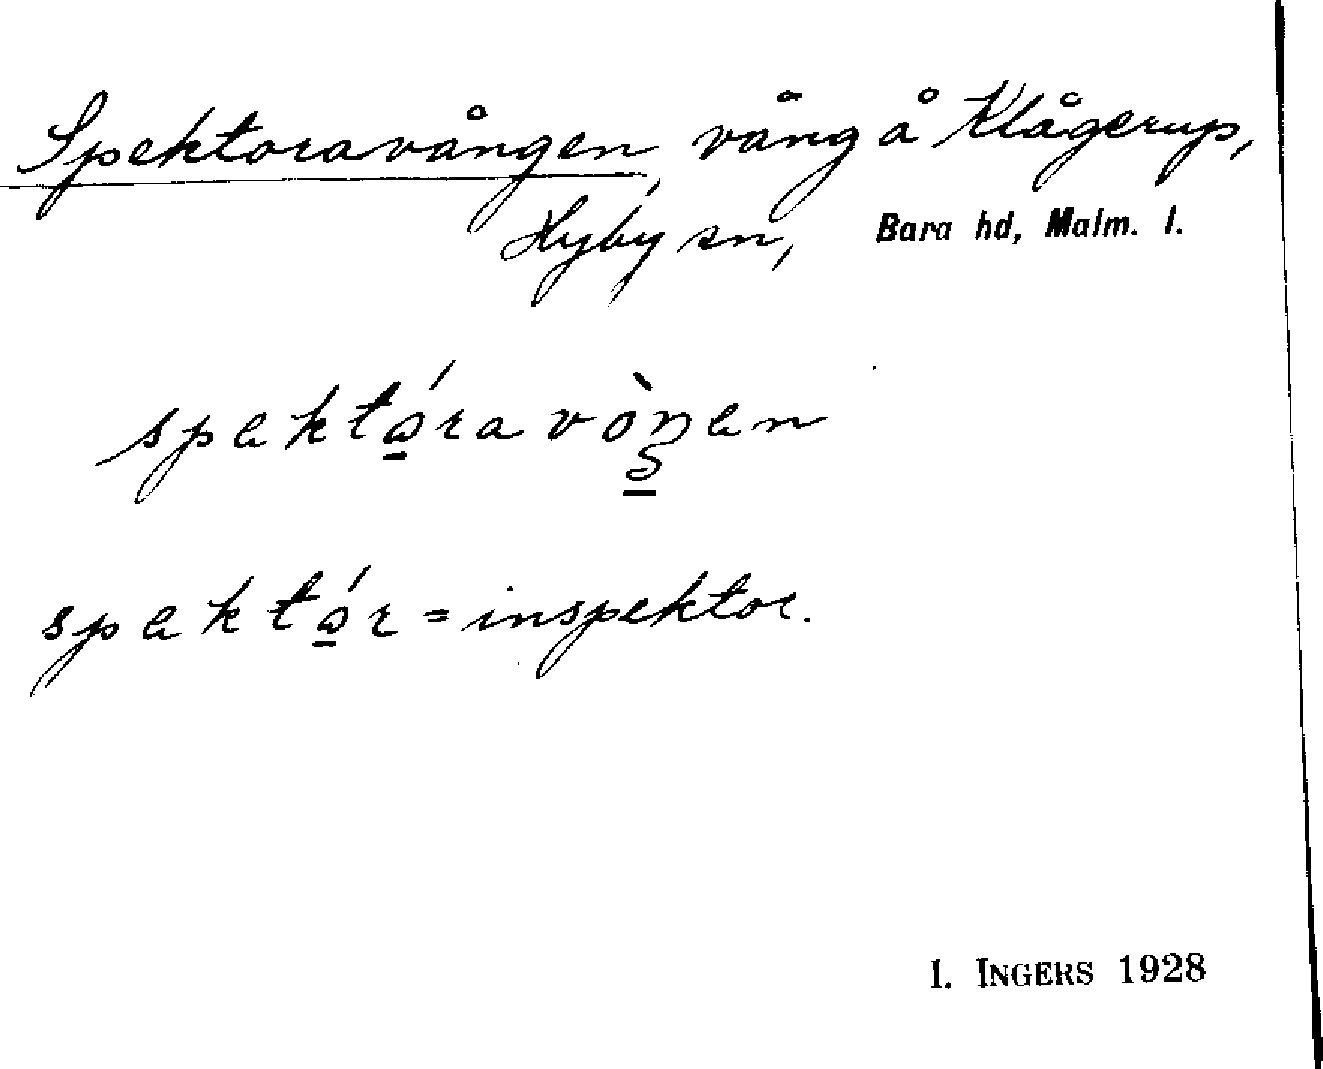 Spektoravången, vång å Klågerup,
Hyby sn, Bara hd, Malm. l.
spektóravòŋen
spektór = inspektor.
I. INGERS 1928